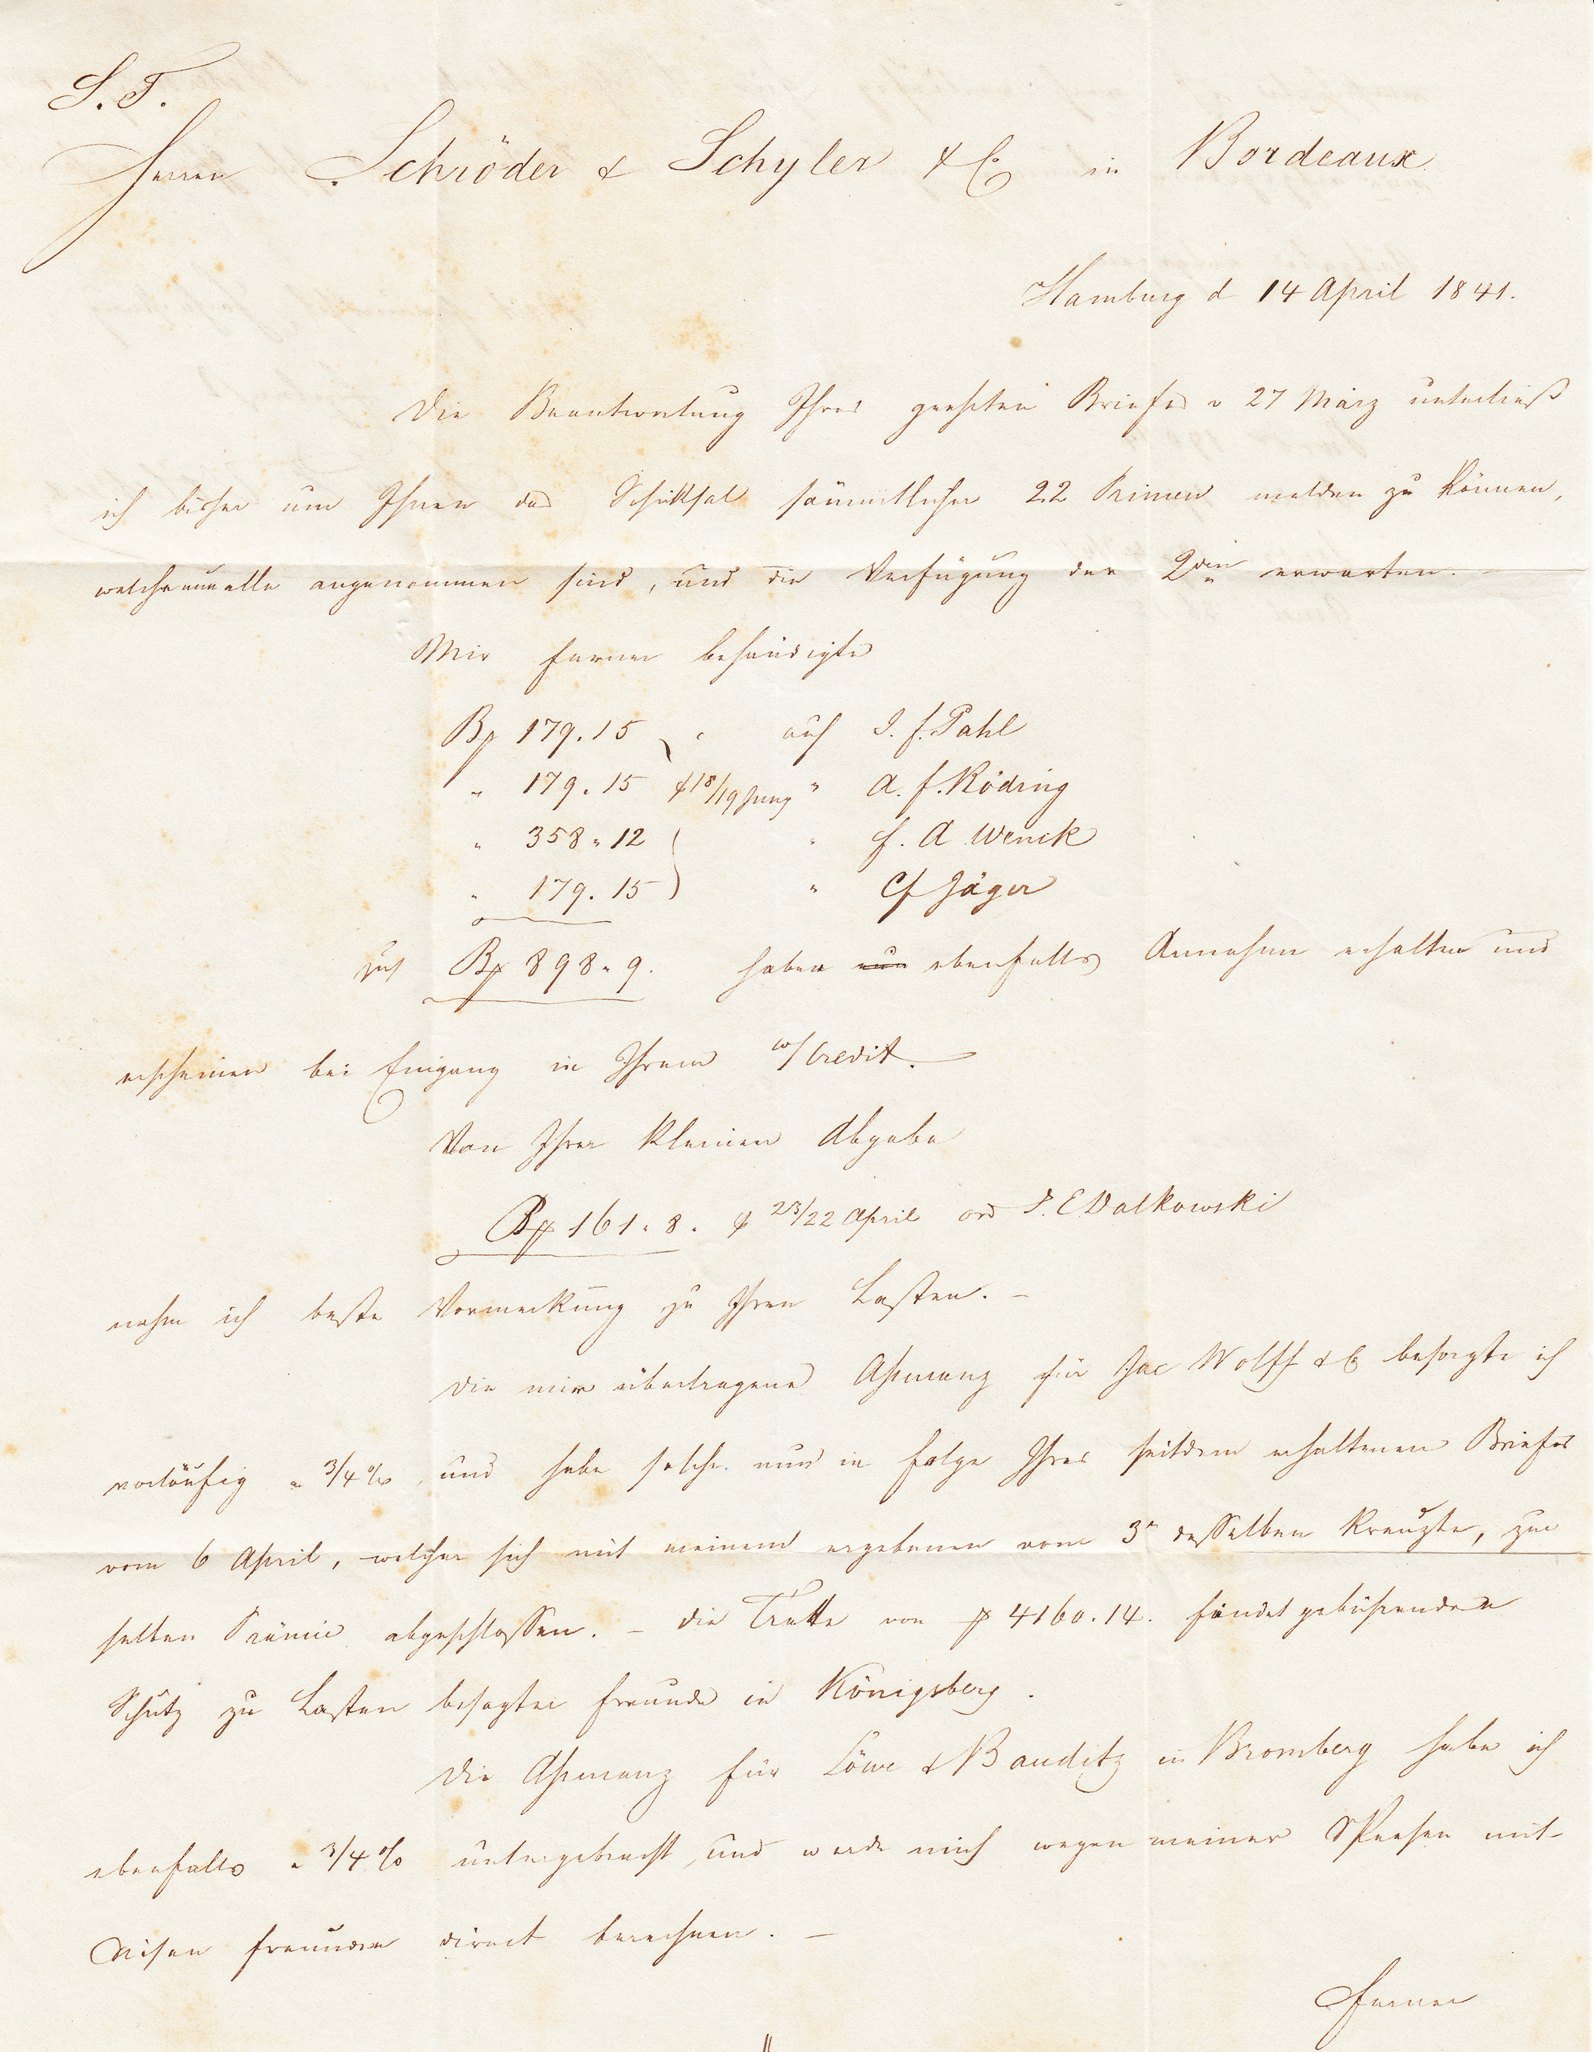 S. T.
Herren Schröder & Schyler & C° in Bordeaux
Hamburg d 14 April 1841.
Die Beantwortung Ihres geehrten Briefes v 27 März unterließ
ich bisher um Ihnen das Schiksal sämmtlicher 22 Primen melden zu können,
welche nun alle angenommen sind, und die Verfügung der 2den erwarten.
Mir ferner behändigte
Bȼ 179.15 auf J. F. Pahl
" 179.15 18/19 Juny " A. F. Röding
" 358.12 " F. A Wenck
" 179.15 " CF Jäger
zus Bȼ 898.9. haben nun ebenfalls Annahme erhalten und
erscheinen bei Eingang in Ihrem Credit.
Von Ihrer kleinen Abgabe
Bȼ 161.8. 23/22 April ord J. E Valkowski
nahm ich beste Vormerkung zu Ihren Lasten. –
Die mir übertragene Assecuranz für Jac Wolff & C° besorgte ich
vorläufig a 3/4 %, und habe solche nun in Folge Ihres seitdem erhaltenen Briefes
vom 6 April, welcher sich mit meinem ergebenen vom 3n desselben kreuzte, zur
selben Prämie abgeschlossen. – Die Tratte von 4160.14. findet gebührenden
Schutz zu Lasten besagter Freunde in Königsberg.
Die Assecuranz für Löwe & Bauditz in Bromberg habe ich
ebenfalls a 3/4 % untergebracht, und werde mich wegen meiner Spesen mit
diesen Freunden direct berechnen. –
Ferner